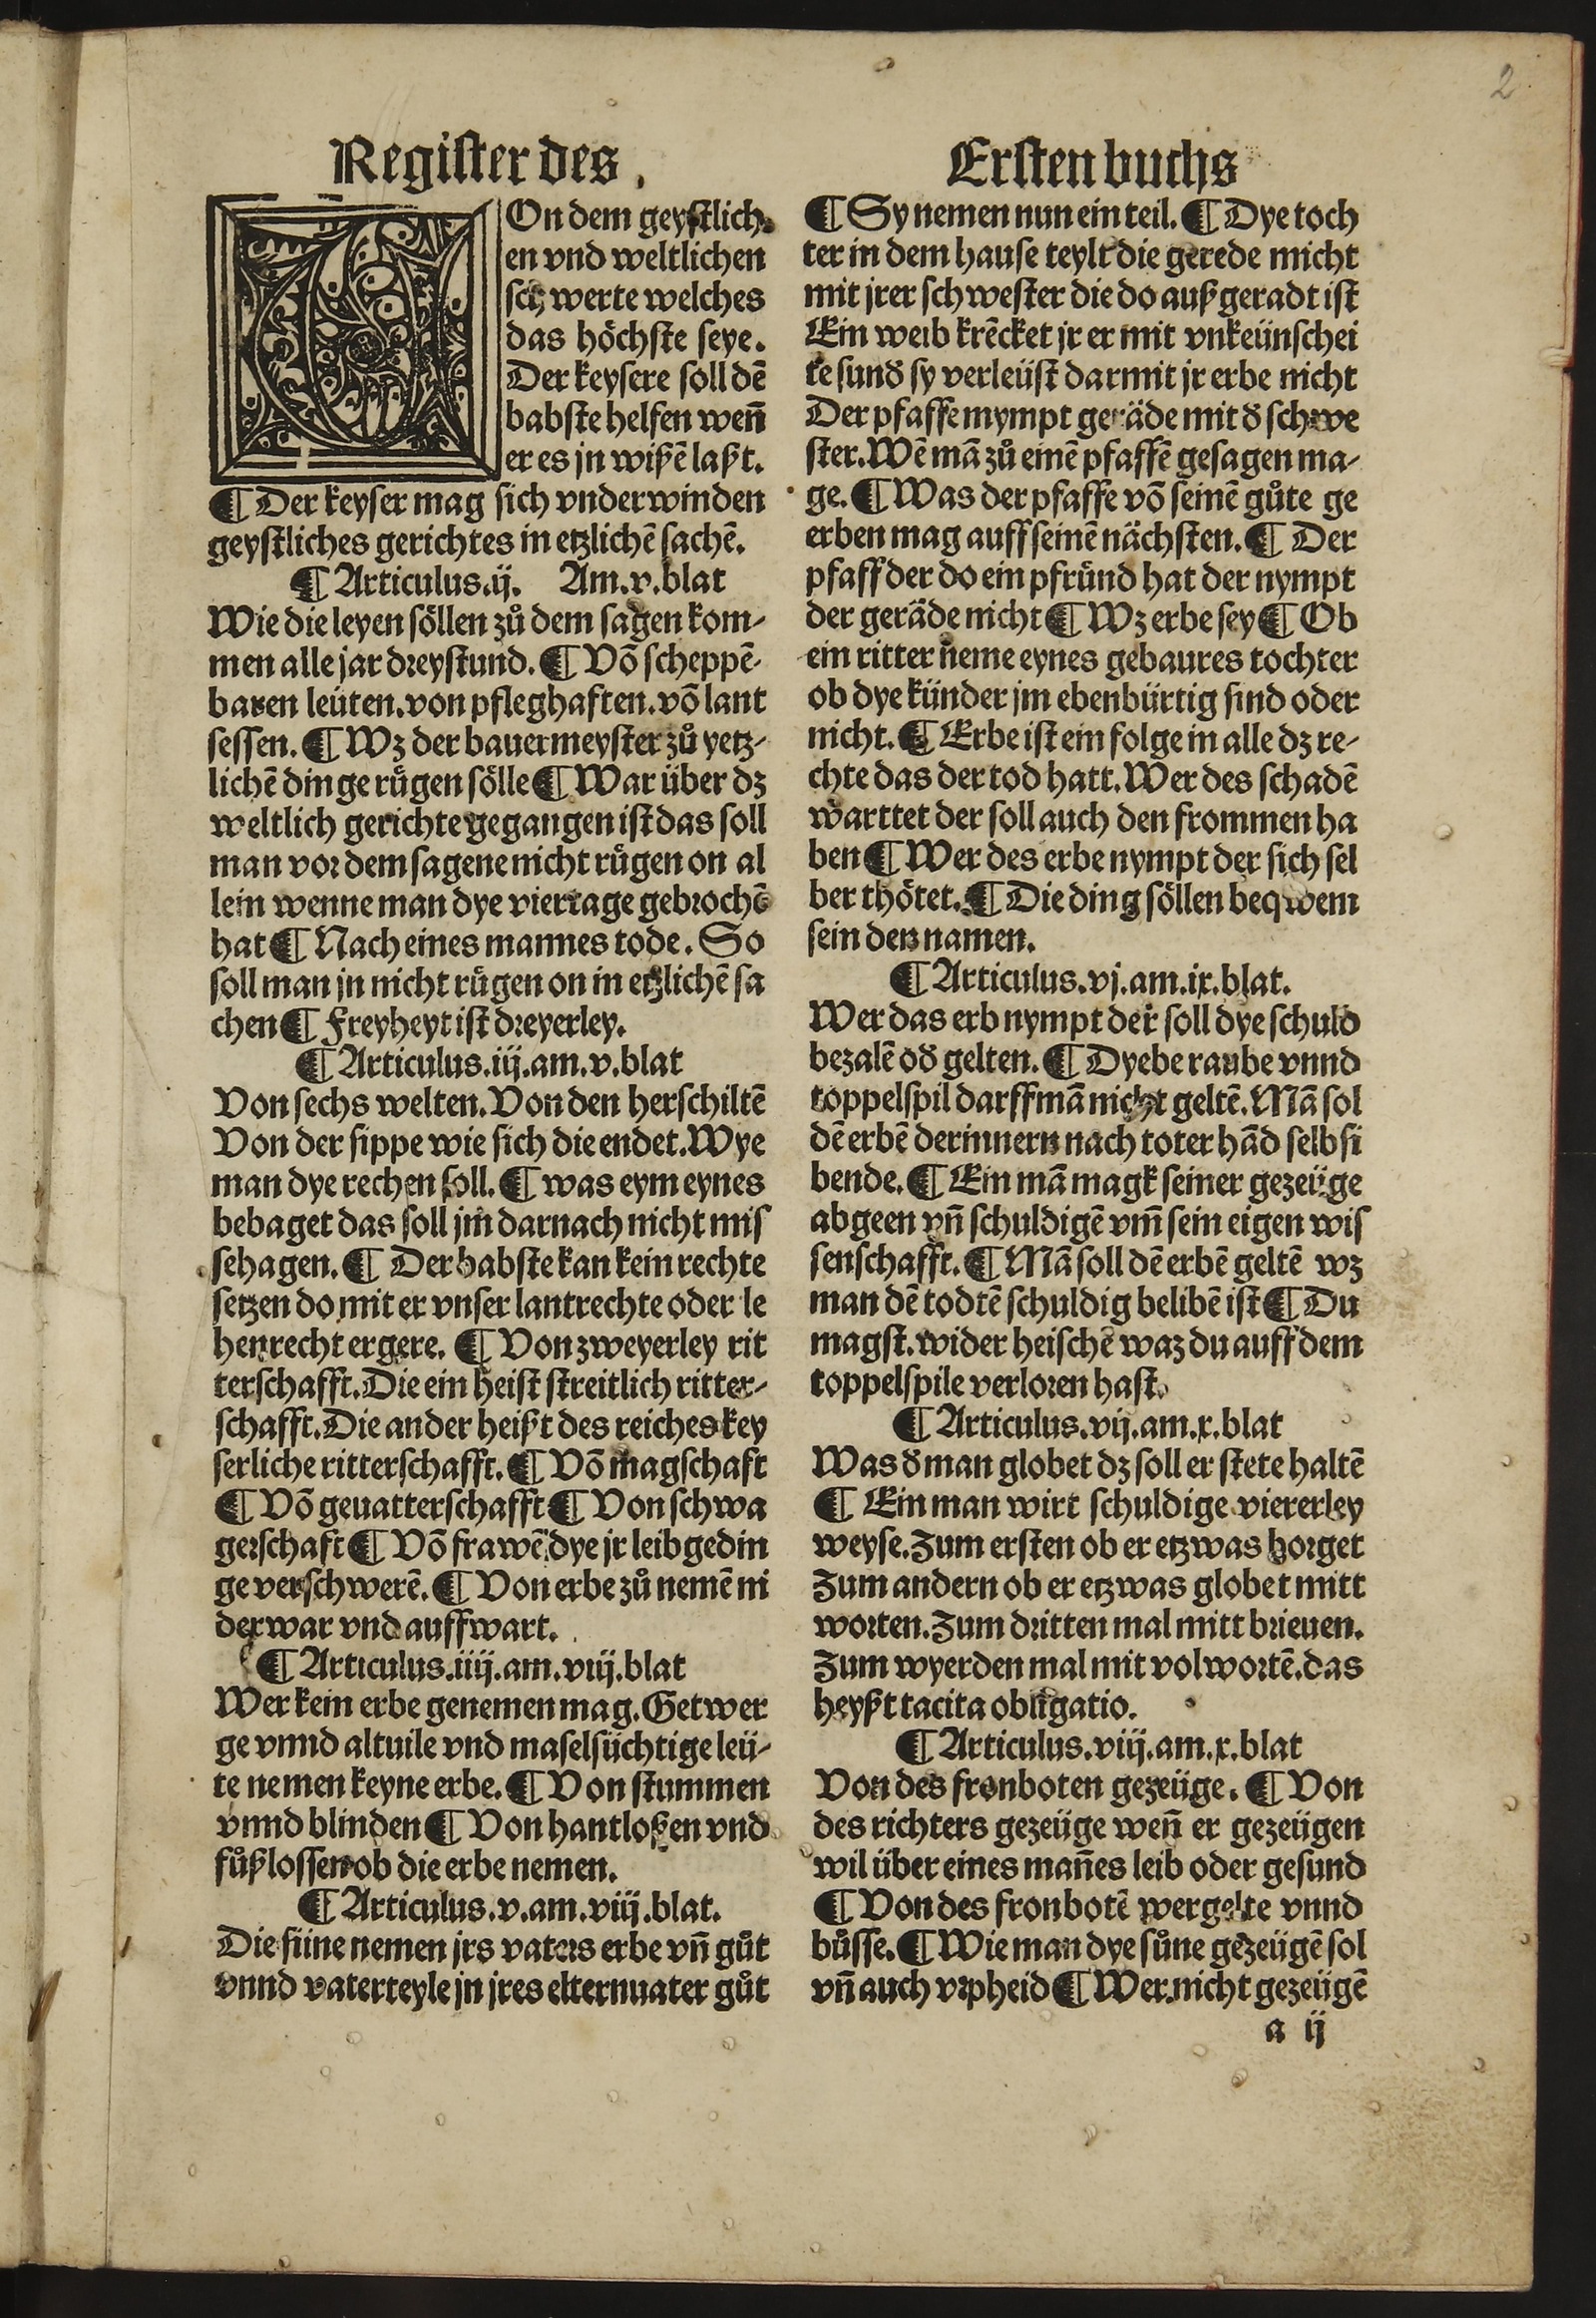 2
Register des
Ersten buchs
VOn dem geystlich
en vnd weltlichen
schwerte welches
das höchste seye.
Der keysere soll dē
babste helfen weñ
er es jn wißē laßt.
¶ Der keyser mag sich vnderwinden
geystliches gerichtes in etzlichē sachē.
¶ Articulus.ij. Am.v.blat
Wie die leyen söllen zů dem sagen kom⸗
men alle jar dreystund. ¶ Võ scheppē⸗
baren leüten.von pfleghaften.võ lant
sessen. ¶ Wz der bauermeyster zů yetz⸗
lichē dinge rügen sölle ¶ War über dz
weltlich gerichte gegangen ist das soll
man vor dem sagene nicht rügen on al
lein wenne man dye viertage gebrochē
hat ¶ Nach eines mannes tode. So
soll man jn nicht rügen on in etzlichē sa
chen ¶ Freyheyt ist dreyerley.
¶ Articulus.iij.am.v.blat
Von sechs welten.Von den herschiltē
Von der sippe wie sich die endet.Wye
man dye rechen soll. ¶ was eym eynes
behaget das soll jm darnach nicht mis
sehagen. ¶ Der babste kan kein rechte
setzen do mit er vnser lantrechte oder le
henrecht ergere. ¶ Von zweyerley rit
terschafft.Die ein heist streitlich ritter⸗
schafft.Die ander heißt des reiches key
serliche ritterschafft. ¶ Võ magschaft
¶ Võ geuatterschafft ¶ Von schwa
gerschaft ¶ Võ frawē dye jr leibgedin
ge verschwerē. ¶ Von erbe zů nemē ni
derwar vnd auffwart.
¶ Articulus.iiij.am.viij.blat
Wer kein erbe genemen mag.Getwer
ge vnnd altuile vnd maselsüchtige leü⸗
te nemen keyne erbe. ¶ Von stummen
vnnd blinden ¶ Von hantloßen vnd
fůßlossen ob die erbe nemen.
¶ Articulus.v.am.viij.blat.
Die süne nemen jrs vaters erbe vñ gůt
vnnd vaterteyle jn jres elternuater gůt
¶ Sy nemen nun ein teil. ¶ Dye toch
ter in dem hause teylt die gerede nicht
mit jrer schwester die do außgeradt ist
Ein weib krēcket jr er mit vnkeünschei
te sunđ sy verleüst darmit jr erbe nicht
Der pfaffe nympt geräde mit đ schwe
ster.Wē mã zů einē pfaffē gesagen ma⸗
ge. ¶ Was der pfaffe võ seinē gůte ge
erben mag auff seinē nächsten. ¶ Der
pfaff der do ein pfründ hat der nympt
der geräde nicht ¶ Wz erbe sey ¶ Ob
ein ritter neme eynes gebaures tochter
ob dye künder jm ebenbürtig sind oder
nicht. ¶ Erbe ist ein folge in alle dz re⸗
chte das der tod hatt.Wer des schadē
warttet der soll auch den frommen ha
ben ¶ Wer des erbe nympt der sich sel
ber thötet. ¶ Die ding söllen beqwem
sein den namen.
¶ Articulus.vj.am.ix.blat.
Wer das erb nympt der soll dye schuld
bezalē ođ gelten. ¶ Dyebe raube vnnd
toppelspil darff mã nicht geltē.Mã sol
dē erbē derinnern nach toter hãd selb si
bende. ¶ Ein mã magk seiner gezeüge
abgeen vñ schuldigē vm̃ sein eigen wis
senschafft. ¶ Mã soll dē erbē geltē wz
man dē todtē schuldig belibē ist ¶ Du
magst.wider heischē waz du auff dem
toppelspile verloren hast.
¶ Articulus.vij.am.x.blat
Was đ man globet dz soll er stete haltē
¶ Ein man wirt schuldige viererley
weyse.Zum ersten ob er etzwas borget
Zum andern ob er etzwas globet mitt
worten.Zum dritten mal mitt brieuen.
Zum wyerden mal mit volwortē.das
heyßt tacita obligatio.
¶ Articulus.viij.am.x.blat
Von des fronboten gezeüge. ¶ Von
des richters gezeüge weñ er gezeügen
wil über eines mañes leib oder gesund
¶ Von des fronbotē wergelte vnnd
bůsse. ¶ Wie man dye sůne gezeügē sol
vñ auch vrpheid ¶ Wer nicht gezeügē
a ij